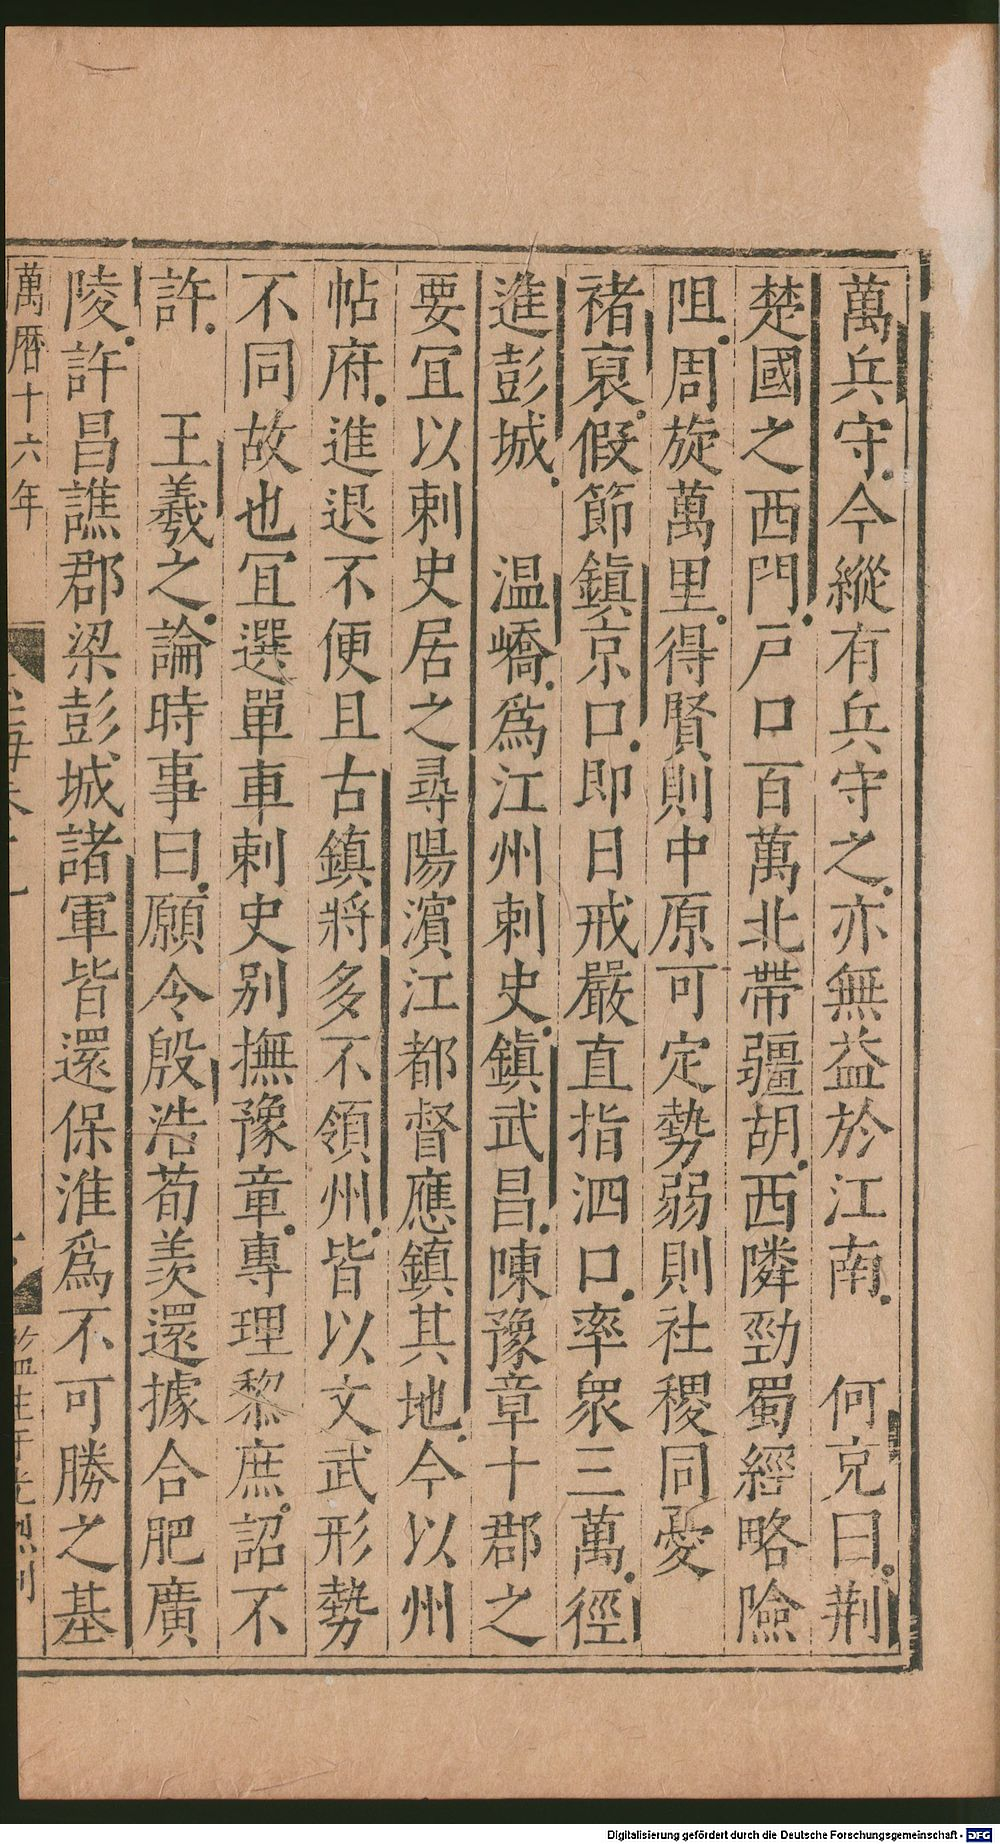 萬兵守今縱有兵守之亦無益於江南　何充曰荆
楚國之西門戶口百萬北帶疆胡西隣勁蜀經略險
阻周旋萬里得賢則中原可定勢弱則社稷同憂
褚裒假節鎮京口即日戒嚴直指泗口率衆三萬徑
進彭城　温嶠爲江州剌史鎮武昌陳豫章十郡之
要冝以剌史居之尋陽濵江都督應鎮其地今以州
帖府進退不便且古鎮將多不領州皆以文武形勢
不同故也冝選單車剌史别撫豫章專理黎庶詔不
許　王羲之論時事曰願令殷浩荀羨還據合肥廣
陵許昌譙郡梁彭城諸軍皆還保淮爲不可勝之基
萬曆十六年
Digitalisierung gefördert durch die Deutsche Forschungsgemeinschaft - DFG